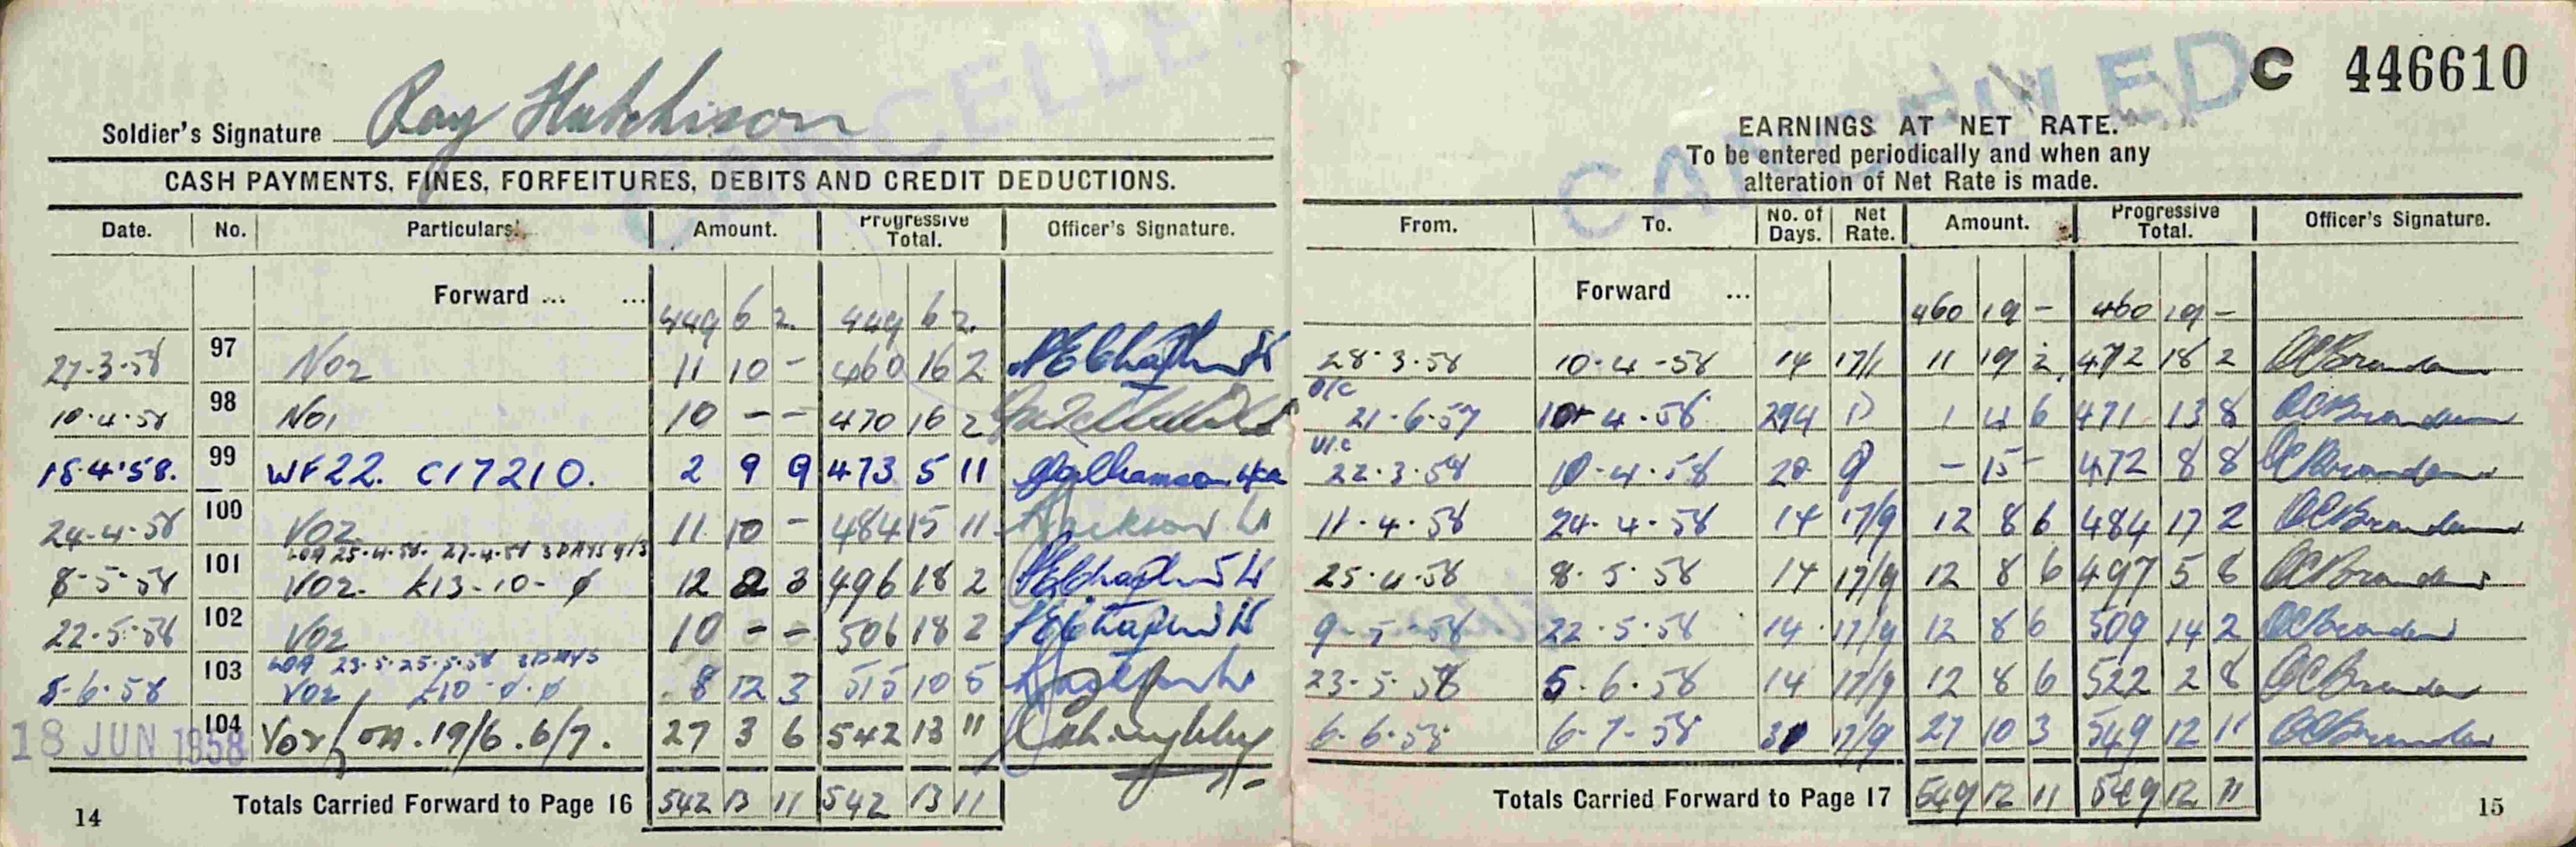 CANCELLED
Soldier's Signature Ray Hutchison
CASH PAYMENTS, FINES, FORFEITURES, DEBITS AND CREDIT DEDUCTIONS.
Date. No. Particulars. Amount. Progressive Total. Officer's Signature.
Forward ... ... 449 6 2 449 6 2
27-3-58 97 11 10 - 460 16 2
10-4-58 98 10 - - 470 16 2
15.4.58. 99 WF22. C17210. 2 9 9 473 5 11
24-4-58 100 11 10 - 484 15 11
25-4-58. 27-4-58 3 DAYS 9/3
8-5-58 101 £13-10-0 12 2 3 496 18 2
22-5-58 102 10 - - 506 18 2
23-5-25-5-58 3 DAYS
5-6-58 103 £10-0-0 8 12 3 515 10 5
18 JUN 1958 104 on 19/6. 6/7. 27 3 6 542 13 11
Totals Carried Forward to Page 16 542 13 11 542 13 11
14
C 446610
CANCELLED
EARNINGS AT NET RATE.
To be entered periodically and when any
alteration of Net Rate is made.
From. To. No. of Days. Net Rate. Amount. Progressive Total. Officer's Signature.
Forward ... 460 19 - 460 19 -
28-3-58 10-4-58 14 17/1 11 19 2 472 18 2
O/C
21-6-57 10-4-58 294 1D 1 4 6 471 13 8
U/C
22-3-58 10-4-58 20 9 - 15 - 472 8 8
11-4-58 24-4-58 14 17/9 12 8 6 484 17 2
25-4-58 8-5-58 14 17/9 12 8 6 497 5 8
9-5-58 22-5-58 14 17/9 12 8 6 509 14 2
23-5-58 5-6-58 14 17/9 12 8 6 522 2 8
6-6-58 6-7-58 31 17/9 27 10 3 549 12 11
Totals Carried Forward to Page 17 549 12 11 549 12 11
15